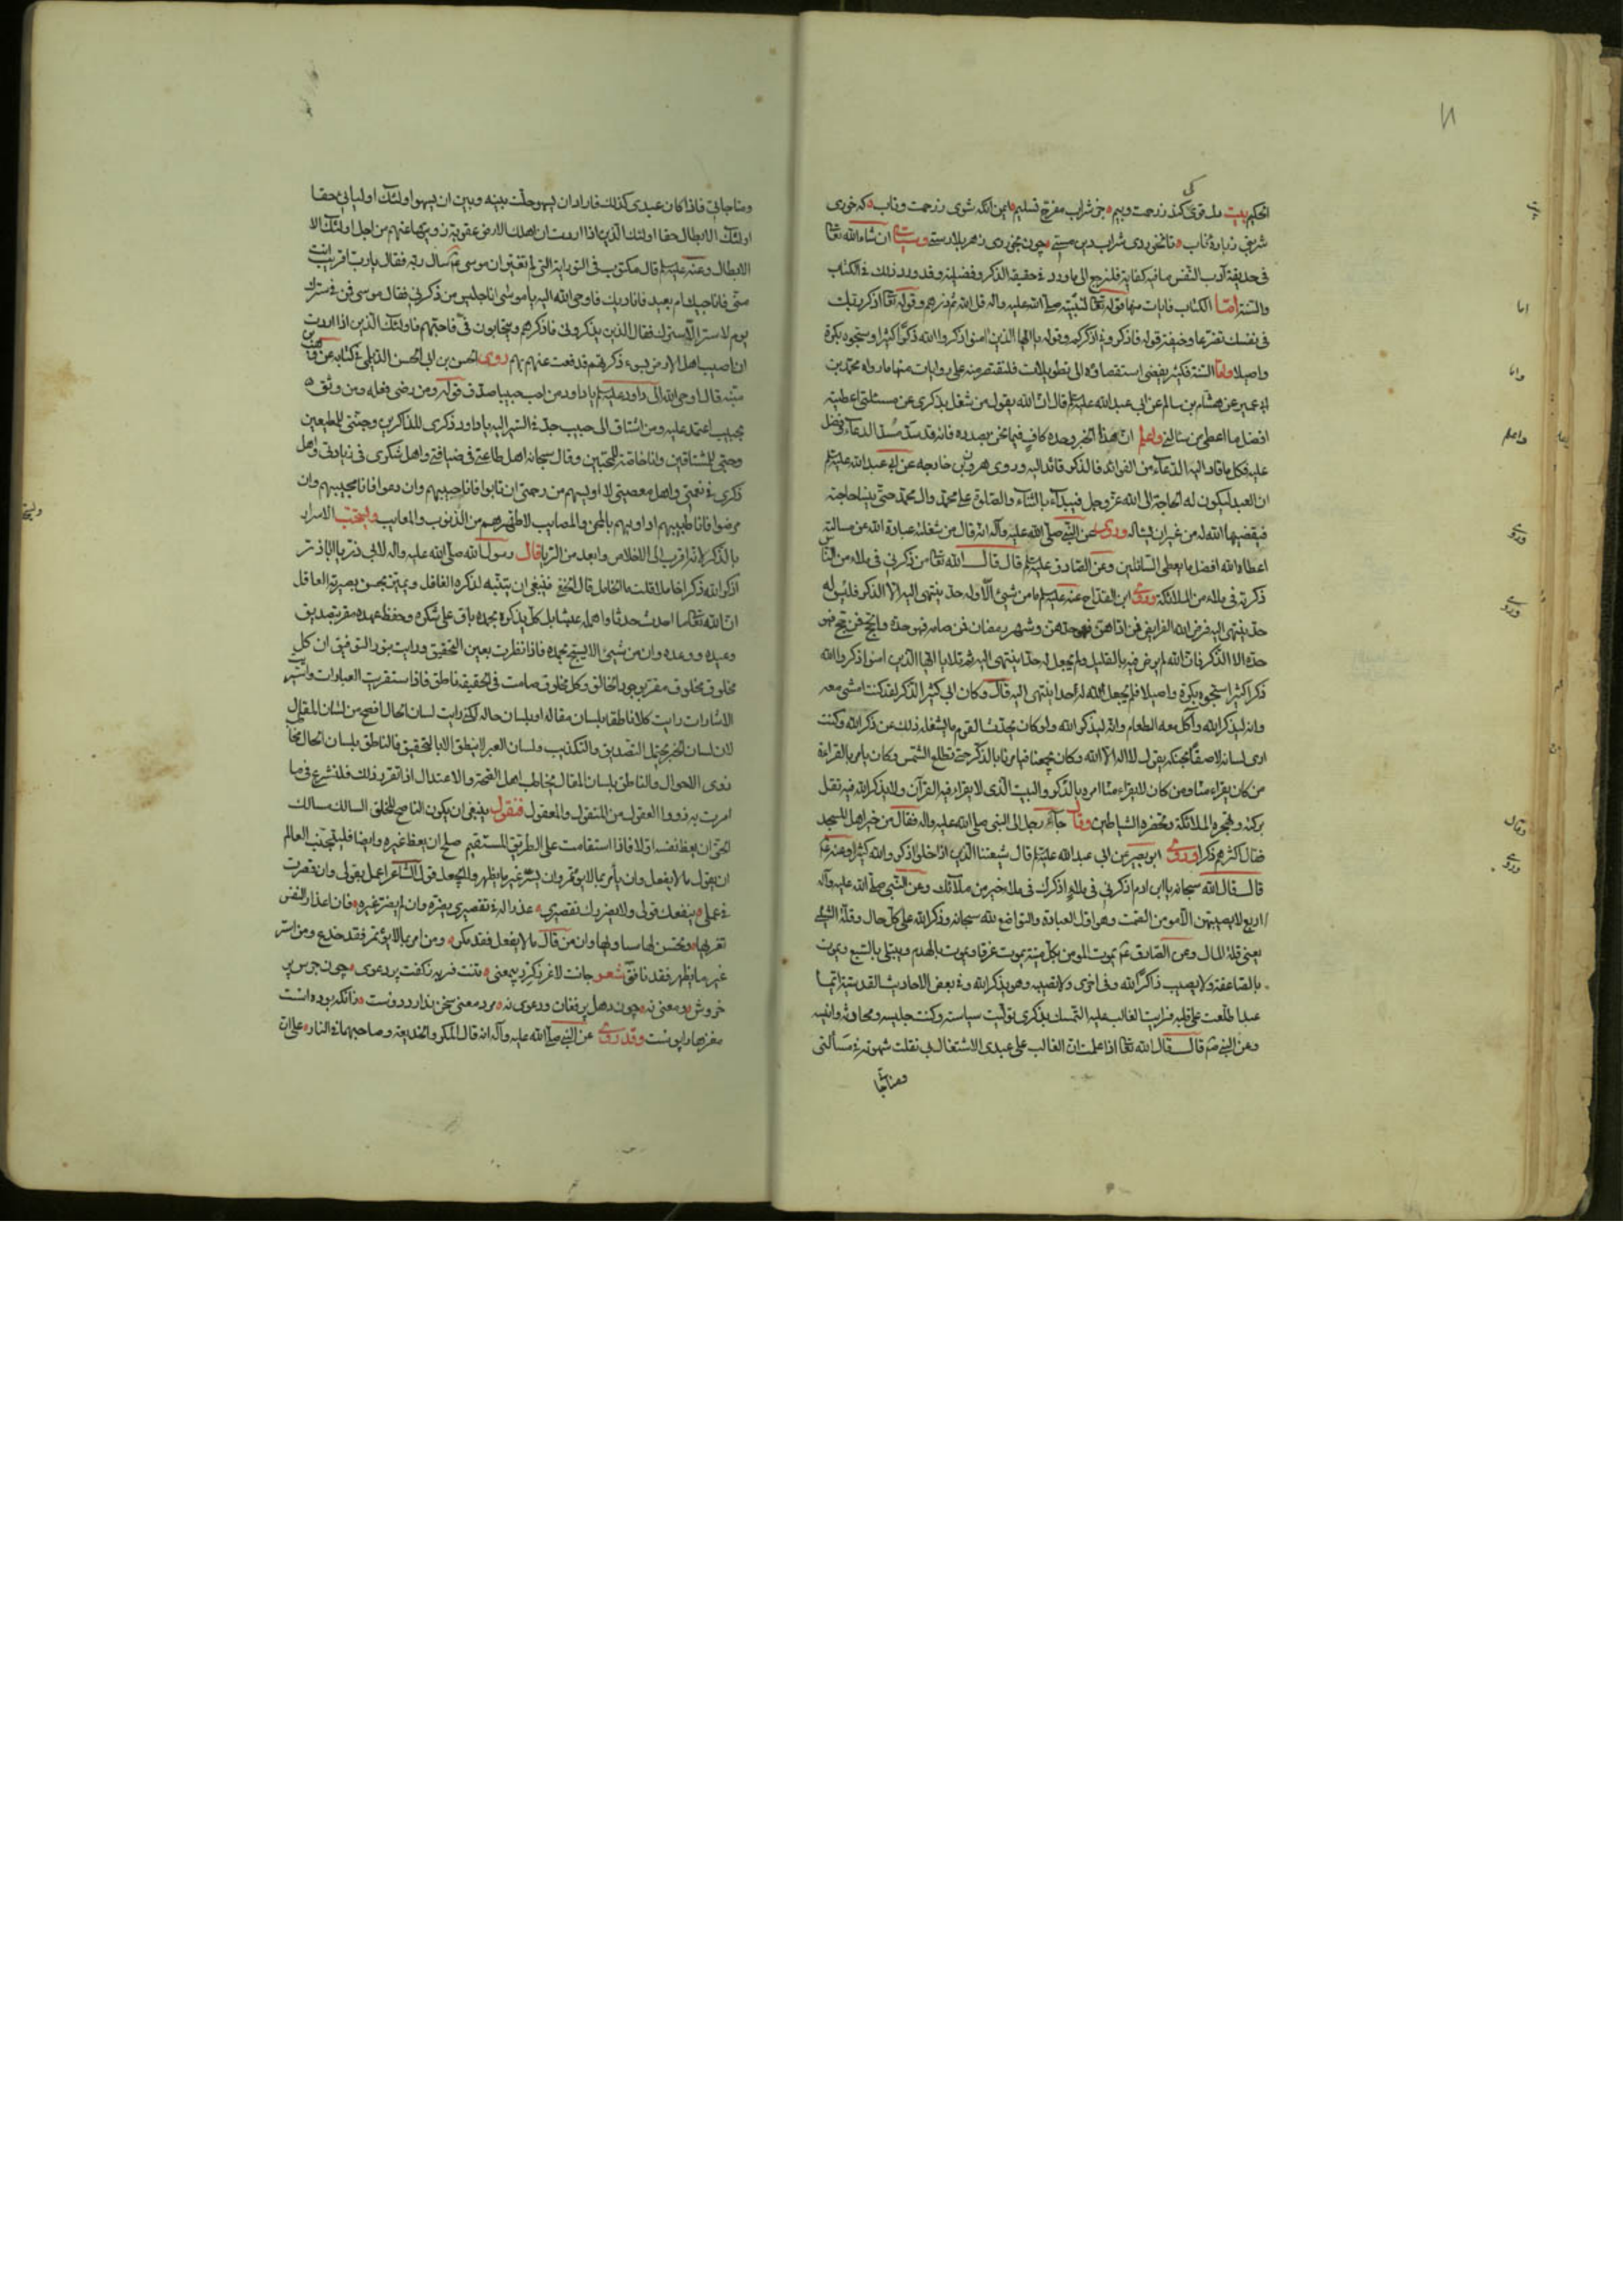 الحكيم بيت دل قوى كى كند زرحمت وبيم جز شراب مفرح تسليم ايمن انكه شوى زرحمت وتاب كه خورى
شربتى زباده ناب تا نخوردى شراب دين مستى چون بخوردى زهر بلا رستى وسيأتى ان شاء الله تعا
فى حديقة آداب النفس ما فيه كفاية فلنرجع الى ما ورد فى حقيقة الذكر وفضيلته وقد ورد ذلك فى الكتاب
والسنة اما الكتاب فايات منها قوله تعا لنبيه صلى الله عليه واله قل الله ثم ذرهم وقوله تعا اذكر ربك
فى نفسك تضرعا وخيفة قوله فاذكرونى اذكركم وقوله يا ايها الذين امنوا اذكروا الله ذكرا كثيرا وسبحوه بكرة
واصيلا واما السنة فكثير يفضى استقصاؤه الى تطويلات فلنقتصر منه على روايات منها ما رواه محمد بن
ابى عمير عن هشام بن سالم عن ابى عبد الله عليه السلم قال ان الله يقول من شغل بذكرى عن مسئلتى اعطيته
افضل ما اعطى من سئالنى واعلم ان هذا الخبر وحده كاف فيما نحن بصدده فانه قد سد مسد الدعاء وفضل
عليه فكل ما قاد اليه الدعاء من الفوائد فالذكر قائد اليه وروى هرون بن خارجه عن ابى عبد الله عليه السلم
ان العبد ليكون له الحاجة الى الله عز وجل فيبداء بالثناء والصلوة على محمد وال محمد حتى ينسا حاجته
فيقضيها الله له من غير ان يساله وروى عن النبى صلى الله عليه وآله انه قال من شغلته عبادة الله عن مسالته
اعطاه الله افضل ما يعطى السائلين وعن الصادق عليه السلم قال قال الله تعا من ذكرنى فى ملاء من الناس
ذكرته فى ملاء من الملائكة وروى ابن القداح عنه عليه السلم ما من شيئ الا وله حد ينتهى اليه الا الذكر فليس له
حد ينتهى اليه فرض الله الفرايض فمن اداهن فهو حدهن وشهر رمضان فمن صامه فهو حده والحج فمن حج فهو
حده الا الذكر فان الله لم يرض فيه بالقليل ولم يجعل له حدا ينتهى اليه ثم تلا يا ايها الذين امنوا اذكروا الله
ذكرا كثيرا وسبحوه بكرة واصيلا فلم يجعل الله له حدا ينتهى اليه قال وكان ابى كثير الذكر لقد كنت امشى معه
وانه ليذكر الله وآكل معه الطعام وانه ليذكر الله ولو كان يحدث القوم ما يشغله ذلك عن ذكر الله وكنت
ارى لسانه لاصقا بحنكه يقول لا اله الا الله وكان يجمعنا فيامرنا بالذكر حتى تطلع الشمس وكان يامر بالقراءة
من كان يقراء منا ومن كان لا يقراء منا امره بالذكر والبيت الذى لا يقراء فيه القرآن ولا يذكر الله فيه تقل
بركته وتهجره الملائكة وتحضره الشياطين وقال جاء رجل الى النبى صلى الله عليه واله فقال من خير اهل المسجد
فقال اكثرهم ذكرا وروى ابو بصير عن ابى عبد الله عليه السلم قال شيعتنا الذين اذا خلوا ذكروا الله كثيرا وعنه
قال قال الله سبحانه يا ابن ادم اذكرنى فى ملاء اذكرك فى ملاء خير من ملائك وعن النبى صلى الله عليه وآله
اربع لا يصيبهن الا مومن الصمت وهو اول العبادة والتواضع لله سبحانه وذكر الله على كل حال وقلة الشئ
يعنى قلة المال وعن الصادق يموت المومن بكل ميتة يموت غرقا ويموت بالهدم ويبتلى بالسبع ويموت
بالصاعقة ولا يصيب ذاكر الله وفى اخرى ولا تصيبه وهو يذكر الله وفى بعض الاحاديث القدسية ايما
عبد اطلعت على قلبه فرايت الغالب عليه التمسك بذكرى توليت سياسته وكنت جليسه ومحادثه وانيسه
وعن النبى قال قال الله تعا اذا علمت ان الغالب على عبدى الاشتغال بى نقلت شهوته فى مسألتى
ومناجا
اما
واما
واعلم
وروى
وروى
وقال
وروى
ومناجاتى فاذا كان عبدى كذلك فاراد ان يسهو حلت بينه وبين ان يسهو اولئك اوليائى حقا
اولئك الابطال حقا اولئك الذين اذا اردت ان اهلك الارض عقوبة زويتها عنهم من اجل اولئك الا
الابطال وعنه عليه السلم قال مكتوب فى التورية التى لم تغير ان موسى سال ربه فقال يا رب اقريب انت
منى فاناجيك ام بعيد فاناديك فاوحى الله اليه يا موسى انا جليس من ذكرنى فقال موسى فمن فى سترك
يوم لا ستر الا سترك فقال الذين يذكرونى فاذكرهم ويتحابون فى فاحبهم فاولئك الذين اذا اردت
ان اصيب اهل الارض بسوء ذكرتهم فدفعت عنهم بهم روى الحسن بن ابى الحسن الديلمى فى كتابه عن وهب بن
منبه قال اوحى الله الى داود عليه السلم يا داود من احب حبيبا صدق قوله ومن رضى فعله ومن وثق
بحبيب اعتمد عليه ومن اشتاق الى حبيب جد فى السير اليه يا داود ذكرى للذاكرين وجنتى للمطيعين
وحبى للمشتاقين وانا خاصة للمحبين وقال سبحانه اهل طاعتى فى ضيافتى واهل شكرى فى زيادتى واهل
ذكرى فى نعمتى واهل معصيتى لا اويسهم من رحمتى ان تابوا فانا حبيبهم وان دعوا فانا مجيبهم وان
مرضوا فانا طبيبهم اداويهم بالمحن والمصايب لاطهرهم من الذنوب والمعايب وليستحب الاسرار
بالذكر لانه اقرب الى الاخلاص وابعد من الريا قال رسول الله صلى الله عليه واله لابى ذر يا اباذر
اذكر الله ذكرا خاملا قلت ما الخامل قال الخفى فينبغى ان يتنبه لذكره الغافل ويميز بحسن بصيرته العاقل
ان الله تعا ما احدث حدثا واهمله عبثا بل كل يذكره بحمده باق على شكره وحفظ عهده مقر بتصديق
وعيده ووعده وان من شيئ الا يسبح بحمده فاذا نظرت بعين التحقيق ورايت بنور التوفيق ان كل
مخلوق مقر بوجود الخالق وكل مخلوق صامت فى الحقيقة ناطق فاذا استقريت العبادات واستبنت
الاشارات رايت كلا ناطقا بلسان مقاله او بلسان حاله لكنى رايت لسان الحال افصح من لسان المقال
لان لسان الخبر يحتمل التصديق والتكذيب ولسان العبر لا ينطق الا بالتحقيق فالناطق بلسان الحال مخاطب
ذوى الاحوال والناطق بلسان المقال يخاطب اهل الصحة والاعتدال اذا تقرر ذلك فلنشرع فى ما
امرت به ذووا العقول من المنقول والمعقول فنقول ينبغى ان يكون الناصح للخلق السالك مسالك
الحق ان يعظ نفسه اولا فاذا استقامت على الطريق المستقيم صلح ان يعظ غيره وايضا فليجتنب العالم
ان يقول ما لا يفعل وان يأمر بما لا يؤتمر وان يسر غير ما يظهر ولا يجعل قول الشاعر اعمل بقولى وان قصرت
فى عملى ينفعك قولى ولا يضررك تقصيرى عذرا له فى تقصيرى يضره وان لم يضر غيره فان اعذار النفس
تغريها وتحسن لها مساويها وان من قال ما لا يفعل فقد مكر ومن امر بما لا يؤتمر فقد خدع ومن اسر
غير ما يظهر فقد نافق شعر جانت لاغر ذكرد بيمعنى تنت فربه زكفت پر دعوى چون جرس پر
خروش ومعنى نه چون دهل پر فغان ودعوى نه مرد معنى سخن ندارد دوست زانكه بوده است
مغزها را پوست وقد روى عن النبى صلى الله عليه وآله انه قال المكر والخديعة وصاحبهما فى النار على ان